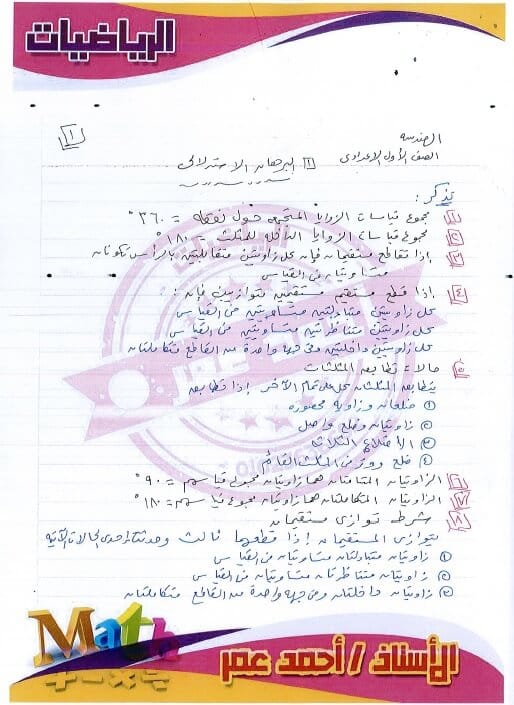 الرياضيات
١
الهندسه
الصف الأول الإعدادى
١ البرهان الاستدلالى
تذكر :
١ مجموع قياسات الزوايا المتجمعه حول نقطه = ٣٦٠°
٢ مجموع قياسات الزوايا الداخله للمثلث = ١٨٠°
٣ إذا تقاطع مستقيمان فإن كل زاويتين متقابلتين بالرأس تكونان
متساويتان فى القياس
٤ إذا قطع مستقيم مستقيمين متوازيين فإن :
كل زاويتين متبادلتين متساويتين فى القياس
كل زاويتين متناظرتين متساويتين فى القياس
كل زاويتين داخلتين وفى جهة واحدة من القاطع متكاملتان
٥ حالات تطابق المثلثات
يتطابق المثلثان كل على تمام الآخر إذا تطابق
١ ضلعان وزاويه محصوره
٢ زاويتان وضلع واصل
٣ الأضلاع الثلاثه
٤ ضلع ووتر فى المثلث القائم
٦ الزاويتان المتتامتان هما زاويتان مجموع قياسهم = ٩٠°
٧ الزاويتان المتكاملتان هما زاويتان مجموع قياسهم = ١٨٠°
٨ شرط توازى مستقيمان
يتوازى المستقيمان إذا قطعهما ثالث وحدثت إحدى الحالات الآتيه
١ زاويتان متبادلتان متساويتان فى القياس
٢ زاويتان متناظرتان متساويتان فى القياس
٣ زاويتان داخلتان وفى جهه واحدة من القاطع متكاملتان
Math
الأستاذ / أحمد عمر